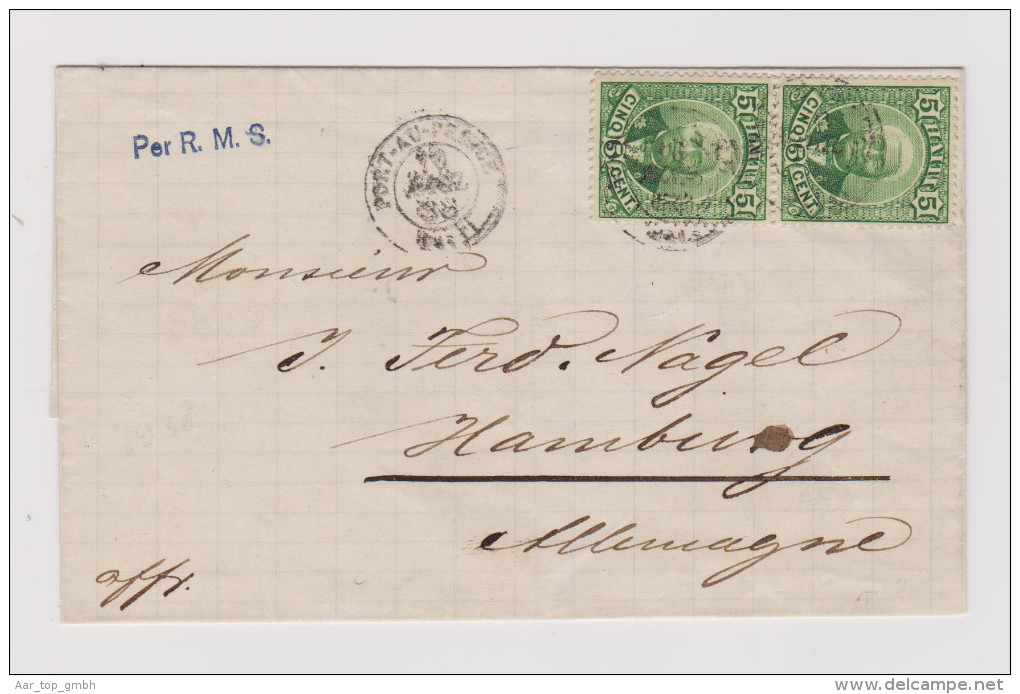 Per R. M. S.
PORT-AU-PRINCE
HAITI
5 HAITI 5
CINQ CENT
5 HAITI 5
CINQ CENT
Monsieur
J. Ferd. Nagel
Hamburg
Allemagne
affr.
Aar_top_gmbh
delcampe.net